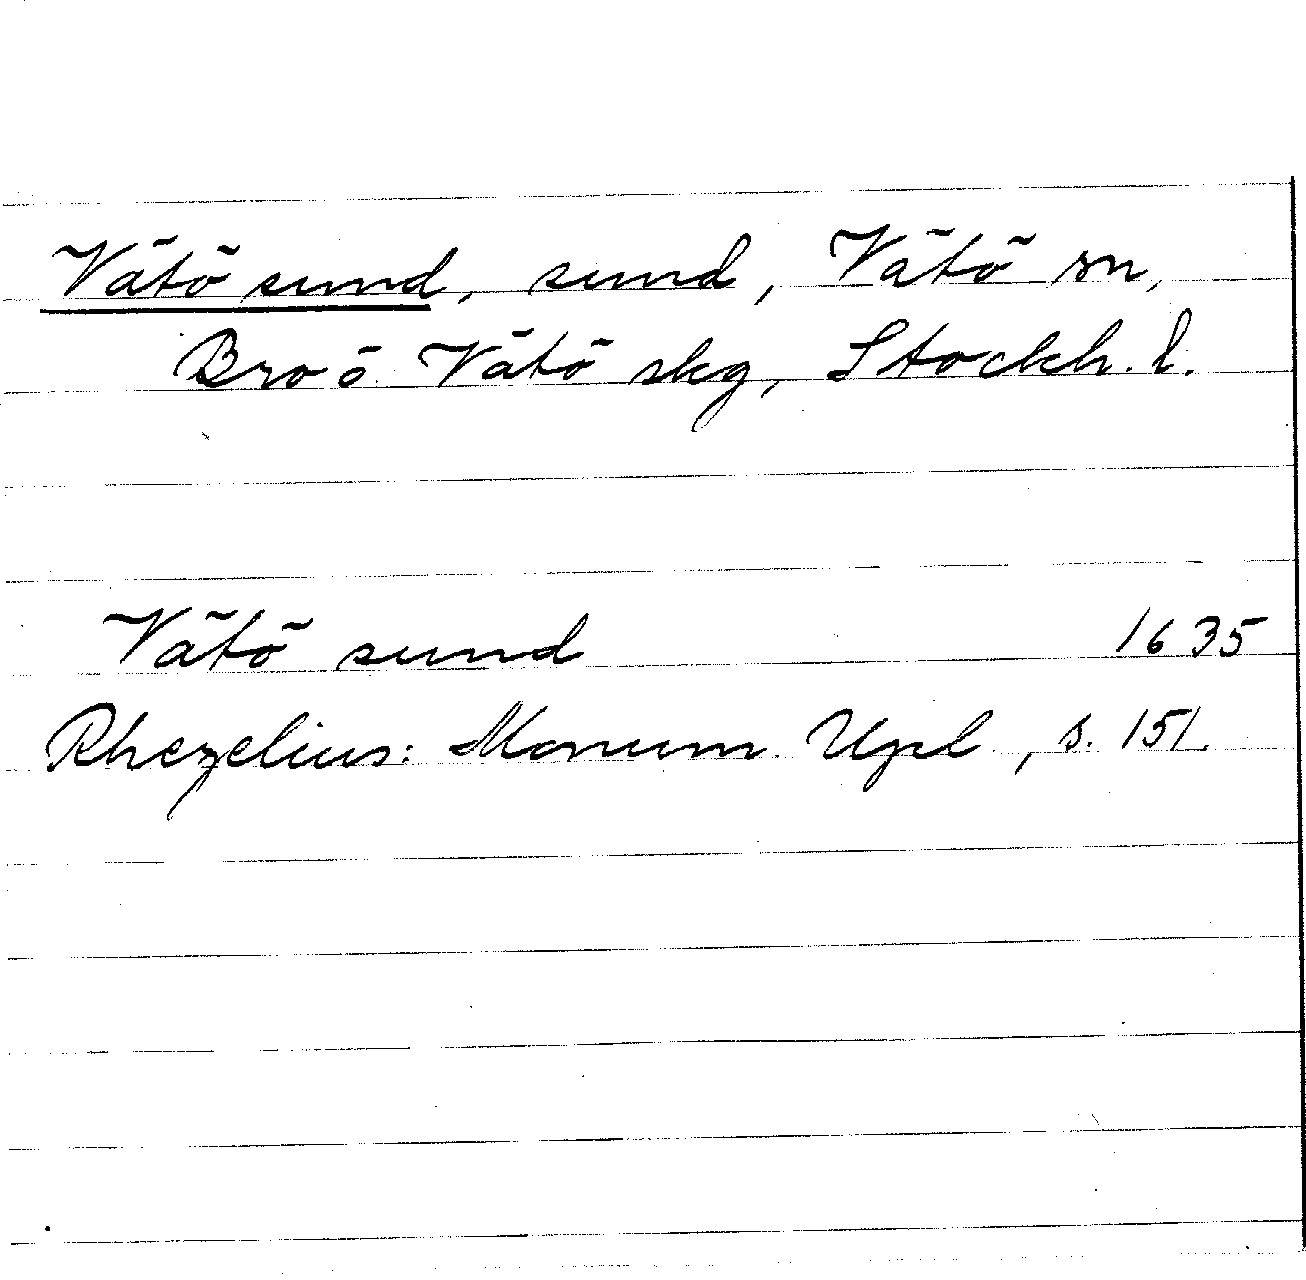 Vätö sund, sund, Vätö sn,
Bro ö. Vätö skg, Stockh. l.
Vätö sund 1635
Rhezelius: Monum. Upl, s. 151.